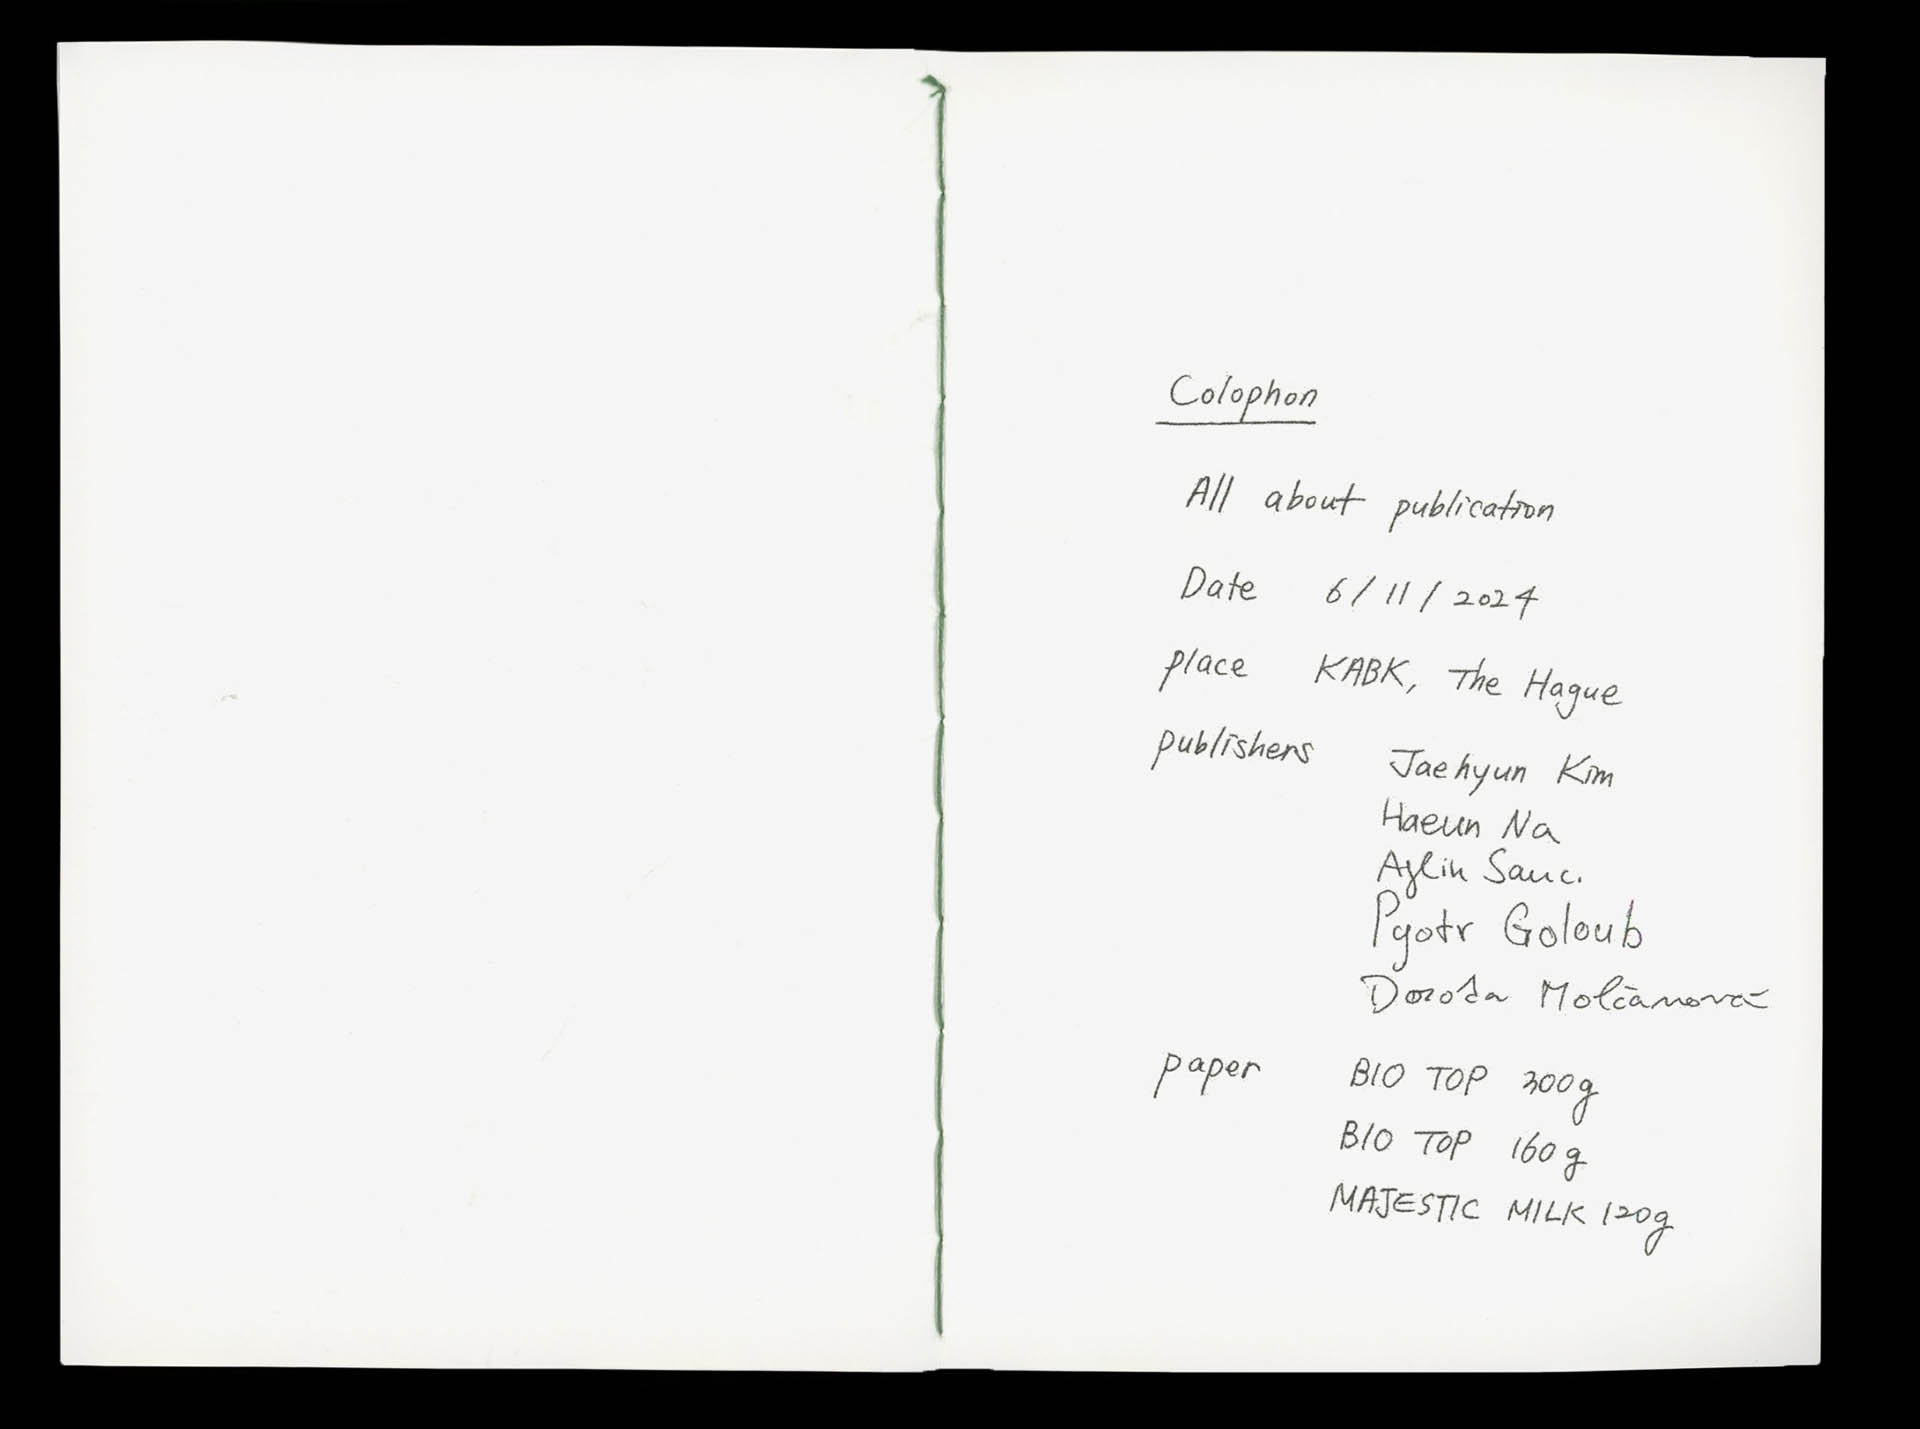 Colophon
All about publication
Date 6/11/2024
place KABK, The Hague
publishers Jaehyun Kim
Haeun Na
Aylin Sanc.
Pyotr Goloub
Dorota Molčanová
paper BIO TOP 300g
BIO TOP 160g
MAJESTIC MILK 120g